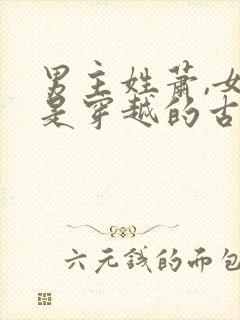 男主姓萧,女
是穿越的古
六元钱的面包